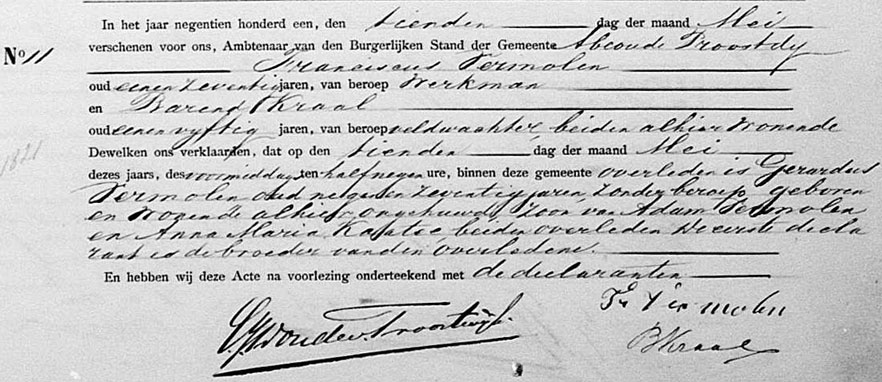 In het jaar negentien honderd een, den tienden dag der maand Mei
verschenen voor ons, Ambtenaar van den Burgerlijken Stand der Gemeente Abcoude Proostdy
No 11
Franciscus Termolen
oud eenen zeventig jaren, van beroep Werkman
en Barend Kraal
oud eenen vyftig jaren, van beroep veldwachter, beiden alhier wonende
Dewelken ons verklaarden, dat op den tienden dag der maand Mei
dezes jaars, des voormiddag ten half negen ure, binnen deze gemeente overleden is Gerardus
Termolen oud negen en zeventig jaren, zonder beroep, geboren
en wonende alhier, ongehuwd, zoon van Adam Termolen
en Anna Maria beiden overleden. De eerste decla
rant is de broeder van den overledene.
En hebben wij deze Acte na voorlezing onderteekend met de declaranten
1821
Fr Termolen
BKraal